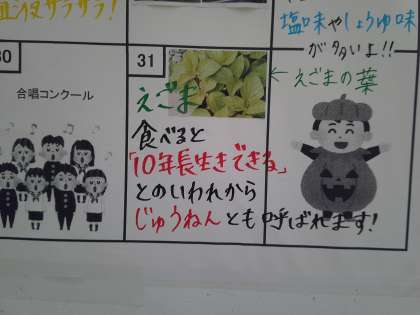 血液サラサラ!
塩味やしょうゆ味
が多いよ!!
30
合唱コンクール
31
←えごまの葉
えごま
食べると
「10年長生きできる」
とのいわれから
じゅうねんとも呼ばれます!